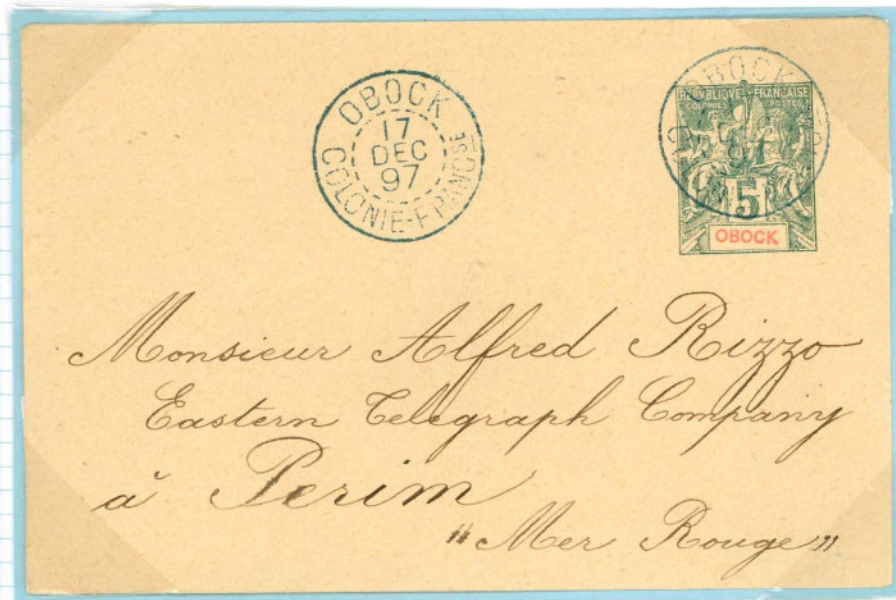 OBOCK
17
DEC
97
COLONIE-FRANÇSE
OBOCK
REPUBLIQUE FRANÇAISE
COLONIES POSTES
5
OBOCK
Monsieur Alfred Rizzo
Eastern Telegraph Company
à Perim
"Mer Rouge"